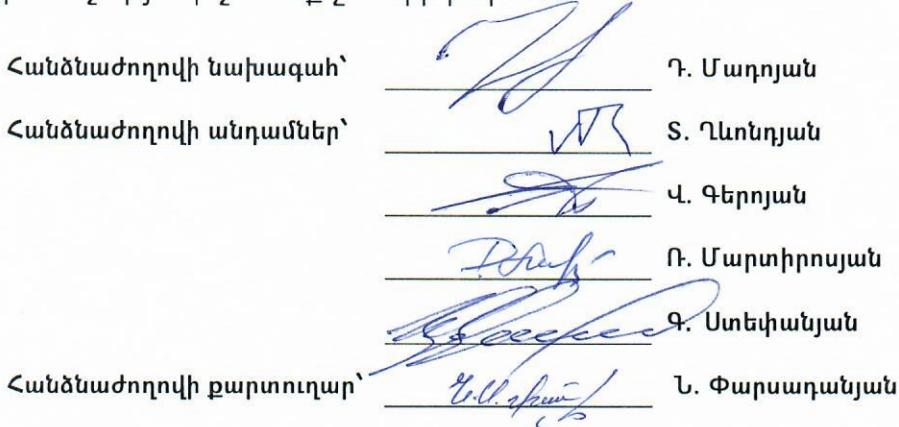 Հանձնաժողովի նախագահ՝ Դ. Մադոյան
Հանձնաժողովի անդամներ՝ Տ. Ղևոնդյան
Վ. Գերոյան
Ռ. Մարտիրոսյան
Գ. Ստեփանյան
Հանձնաժողովի քարտուղար՝ Ն. Փարսադանյան